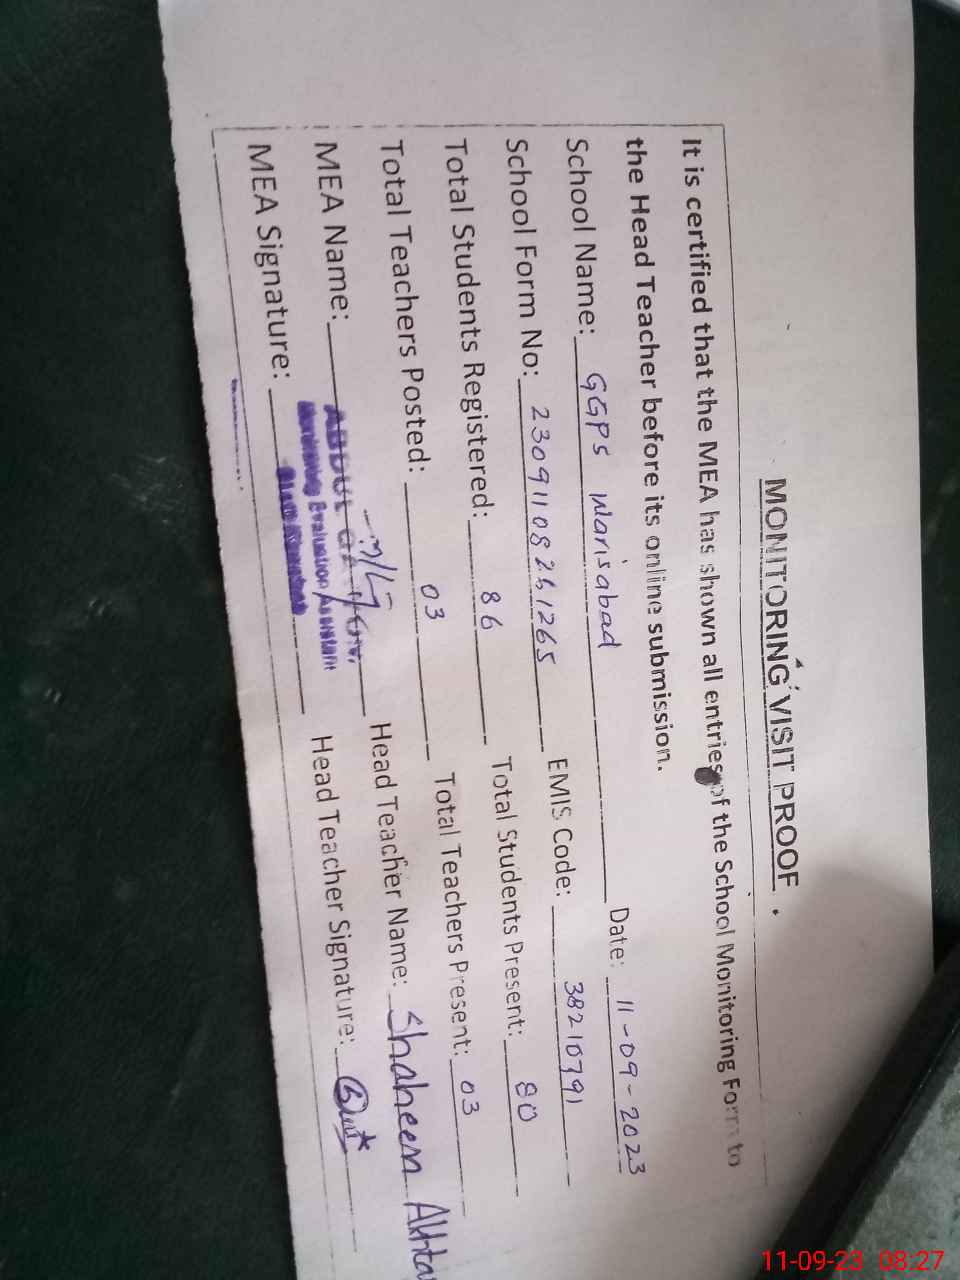 MONITORING VISIT PROOF.
It is certified that the MEA has shown all entries of the School Monitoring Form to
the Head Teacher before its online submission.
School Name: GGPS Warisabad Date: 11-09-2023
School Form No: 23091108261265 EMIS Code: 38210791
Total Students Registered: 86 Total Students Present: 80
Total Teachers Posted: 03 Total Teachers Present: 03
MEA Name: ABDUL Head Teacher Name: Shaheen Akhta
Monitoring Evaluation Assistant
MEA Signature: Head Teacher Signature:
11-09-23 08:27